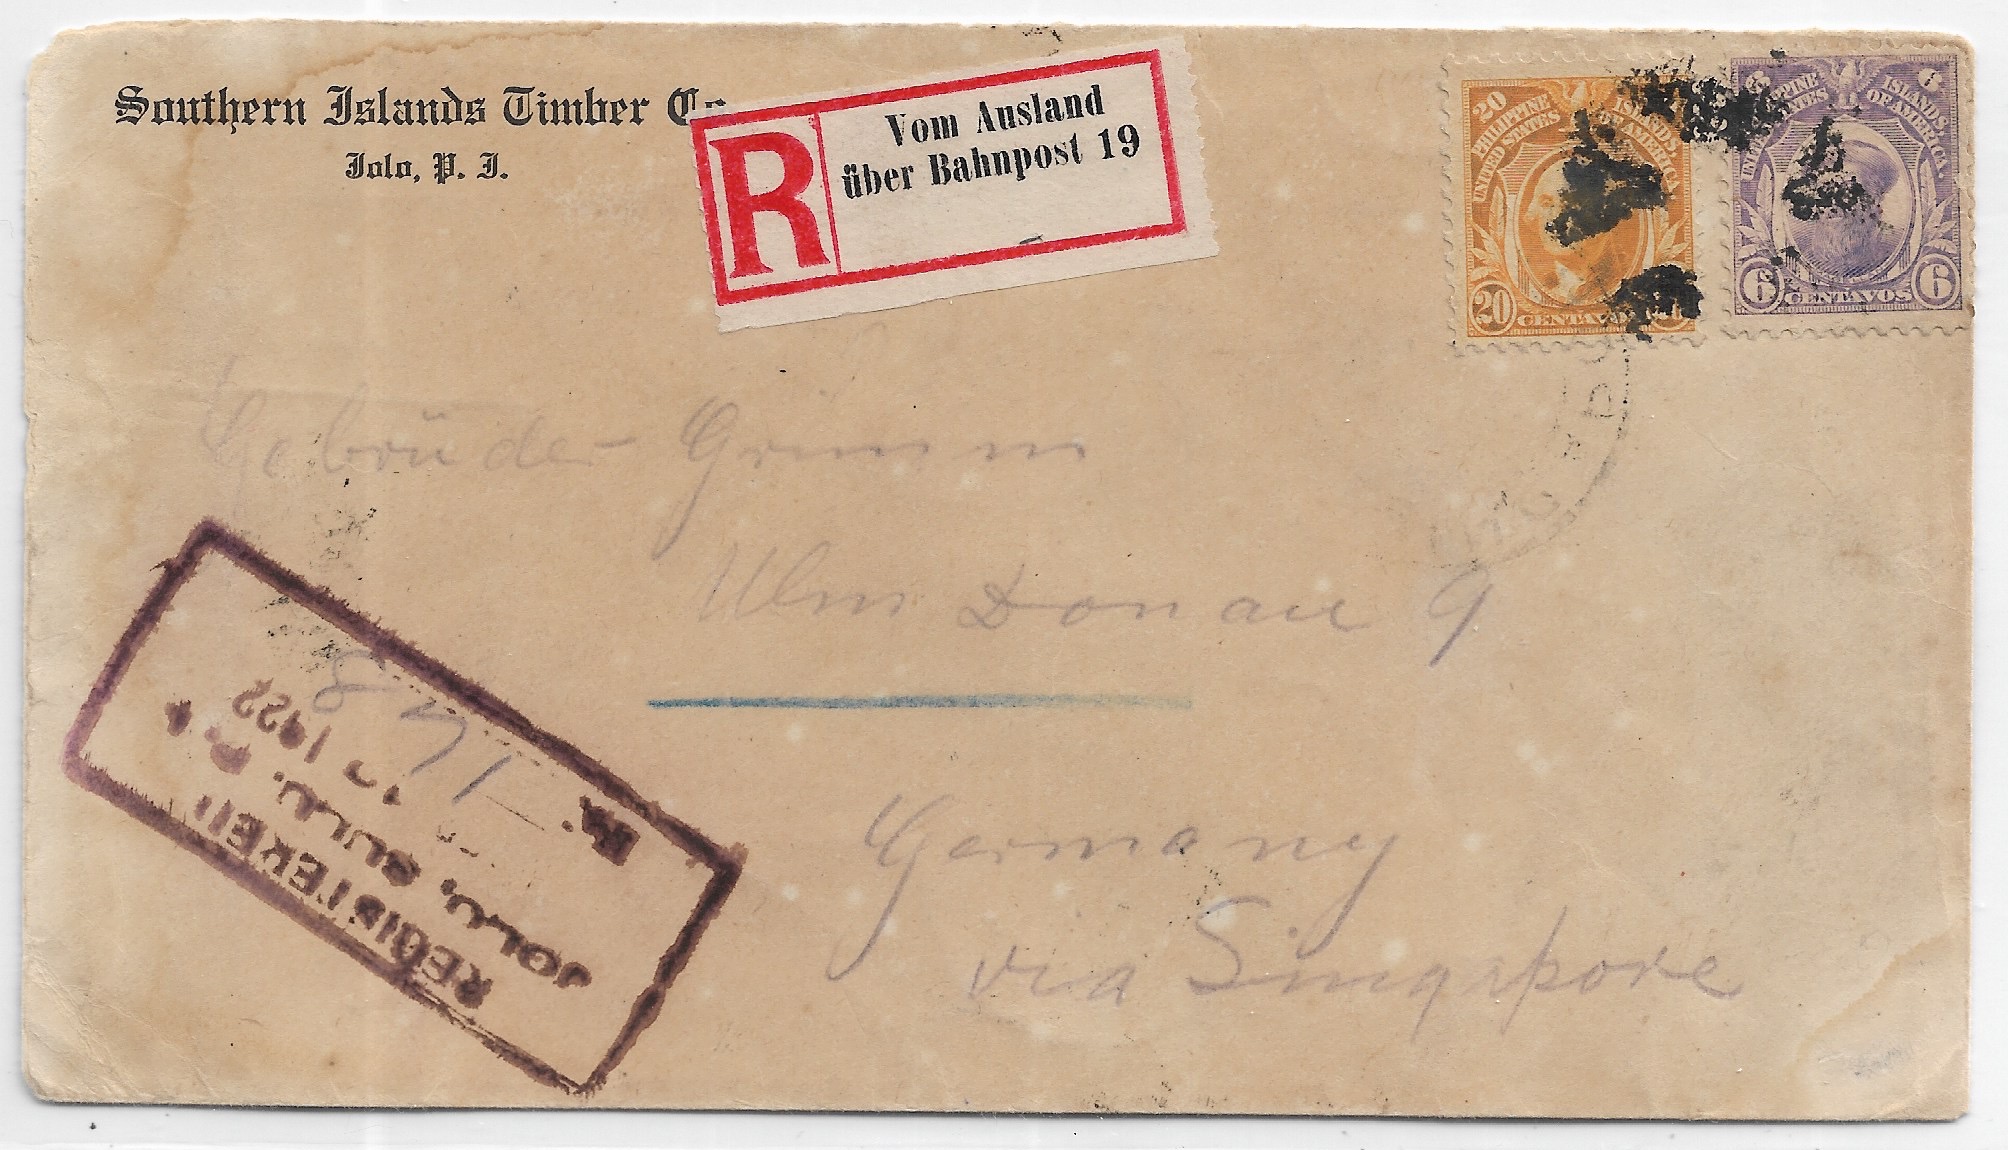 Southern Islands Timber Co
Jolo, P. I.
R
Vom Ausland
über Bahnpost 19
20 20
PHILIPPINE ISLANDS.
UNITED STATES OF AMERICA
20 CENTAVOS
6 6
PHILIPPINE ISLANDS.
UNITED STATES OF AMERICA.
6 CENTAVOS 6
Gebrüder Grimm
Ulm Donau 9
Germany
via Singapore
REGISTERED
JOLO, SULU, P. I.
1922